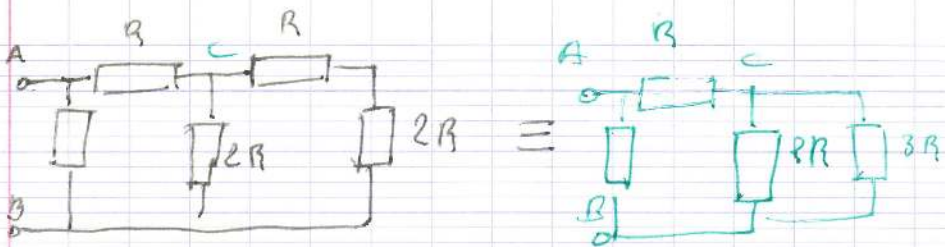 R R
A C
2R 2R
B
≡
R
A C
2R 3R
B